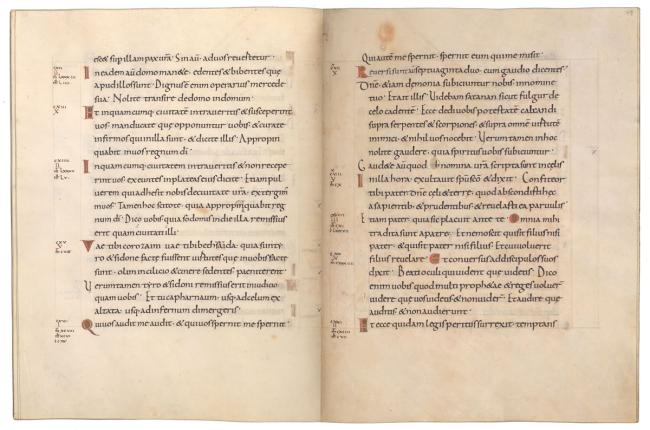 esset sup illam pax ura. Sin aū. ad uos reuertetur.
In eadem aū domo manete. edentes & bibentes que
apud illos sunt. Dignus e enim operarius mercede
sua. Nolite transire de domo in domum.
Et in quamcumq; ciuitatē intraueritis & susceperint
uos. manducate que opponuntur uobis. & curate
infirmos qui in illa sunt. & dicite illis. Appropin
quabit in uos regnum di.
In quamcumq; ciuitatem intraueritis & non recepe
rint uos. exeuntes in plateas eius dicite. Etiam pul
uerem qui adhesit nobis de ciuitate ura. extergim
in uos. Tamen hoc scitote. quia appropinquabit reg
num di. Dico uobis quia sodomis in die illa remissius
erit quam ciuitati illi.
Vae tibi corozaim. uae tibi bethsaida. quia si in ty
ro & sidone facte fuissent uirtutes que in uobis facte
sunt. olim in cilicio & cinere sedentes paeniterent.
Uerumtamen tyro & sidoni remissius erit in iudicio
quam uobis. Et tu capharnaum. usq; ad celum ex
altata. usq; ad infernum dimergeris.
Qui uos audit me audit. & qui uos spernit me spernit.
Qui autē me spernit. spernit eum qui me misit.
Reuersi sunt aū septuaginta duo. cum gaudio dicentes.
Dne. etiam demonia subiciuntur nobis in nomine
tuo. Et ait illis. Uidebam satanan sicut fulgur de
celo cadentē. Ecce dedi uobis potestatē calcandi
supra serpentes & scorpiones. & supra omnē uirtutē
inimici. & nihil uos nocebit. Uerumtamen in hoc
nolite gaudere. quia spiritus uobis subiciuntur.
Gaudete aū quod nomina ura scripta sunt in celis.
In illa hora. exultauit spu sco & dixit. Confiteor
tibi pater dne celi & terre. quod abscondisti hec
a sapientib; & prudentibus. & reuelasti ea paruulis.
Etiam pater. quia sic placuit ante te. Omnia mihi
tradita sunt a patre. Et nemo scit qui sit filius nisi
pater. & qui sit pater nisi filius. Et cui uoluerit
filius reuelare. Et conuersus ad discipulos suos
dixit. Beati oculi qui uident que uidetis. Dico
enim uobis quod multi prophetae & reges uoluer
uidere que uos uidetis & non uider. Et audire que
auditis & non audierunt.
Et ecce quidam legis peritus surrexit. temptans